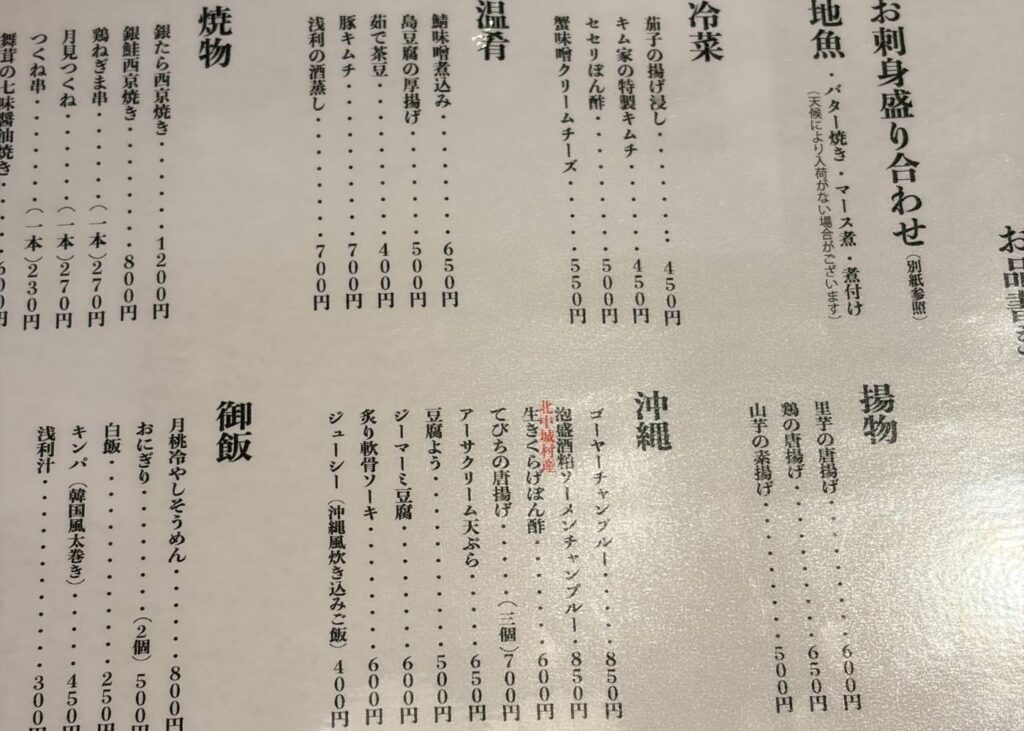 お品書き
お刺身盛り合わせ（別紙参照）
地魚・バター焼き・マース煮・煮付け
（天候により入荷がない場合がございます）
冷菜
茄子の揚げ浸し・・・・・・・450円
キム家の特製キムチ・・・・・450円
セセリぽん酢・・・・・・・・500円
蟹味噌クリームチーズ・・・・550円
温肴
鯖味噌煮込み・・・・・・・・650円
島豆腐の厚揚げ・・・・・・・500円
茹で茶豆・・・・・・・・・・400円
豚キムチ・・・・・・・・・・700円
浅利の酒蒸し・・・・・・・・700円
焼物
銀たら西京焼き・・・・・・1200円
銀鮭西京焼き・・・・・・・・800円
鶏ねぎま串・・・・・（一本）270円
月見つくね・・・・・（一本）270円
つくね串・・・・・・（一本）230円
舞茸の七味醤油焼き・・・・・600円
揚物
里芋の唐揚げ・・・・・・・・600円
鶏の唐揚げ・・・・・・・・・650円
山芋の素揚げ・・・・・・・・500円
沖縄
ゴーヤーチャンプルー・・・・850円
泡盛酒粕ソーメンチャンプルー・850円
北中城村産
生きくらげぽん酢・・・・・・600円
てびちの唐揚げ・・・・（三個）700円
アーサクリーム天ぷら・・・・650円
豆腐よう・・・・・・・・・・500円
ジーマーミ豆腐・・・・・・・600円
炙り軟骨ソーキ・・・・・・・600円
ジューシー（沖縄風炊き込みご飯）400円
御飯
月桃冷やしそうめん・・・・・800円
おにぎり・・・・・・（2個）500円
白飯・・・・・・・・・・・・250円
キンパ（韓国風太巻き）・・・450円
浅利汁・・・・・・・・・・・300円